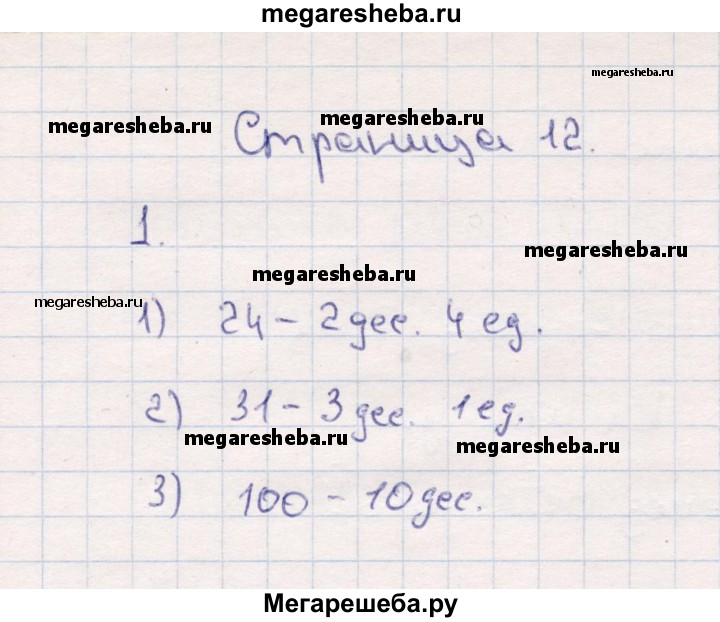 megaresheba.ru
megaresheba.ru
megaresheba.ru
megaresheba.ru
Страница 12.
1.
megaresheba.ru
megaresheba.ru
megaresheba.ru
1) 24 - 2 дес. 4 ед.
2) 31 - 3 дес. 1 ед.
megaresheba.ru
megaresheba.ru
3) 100 - 10 дес.
Мегарешеба.ру